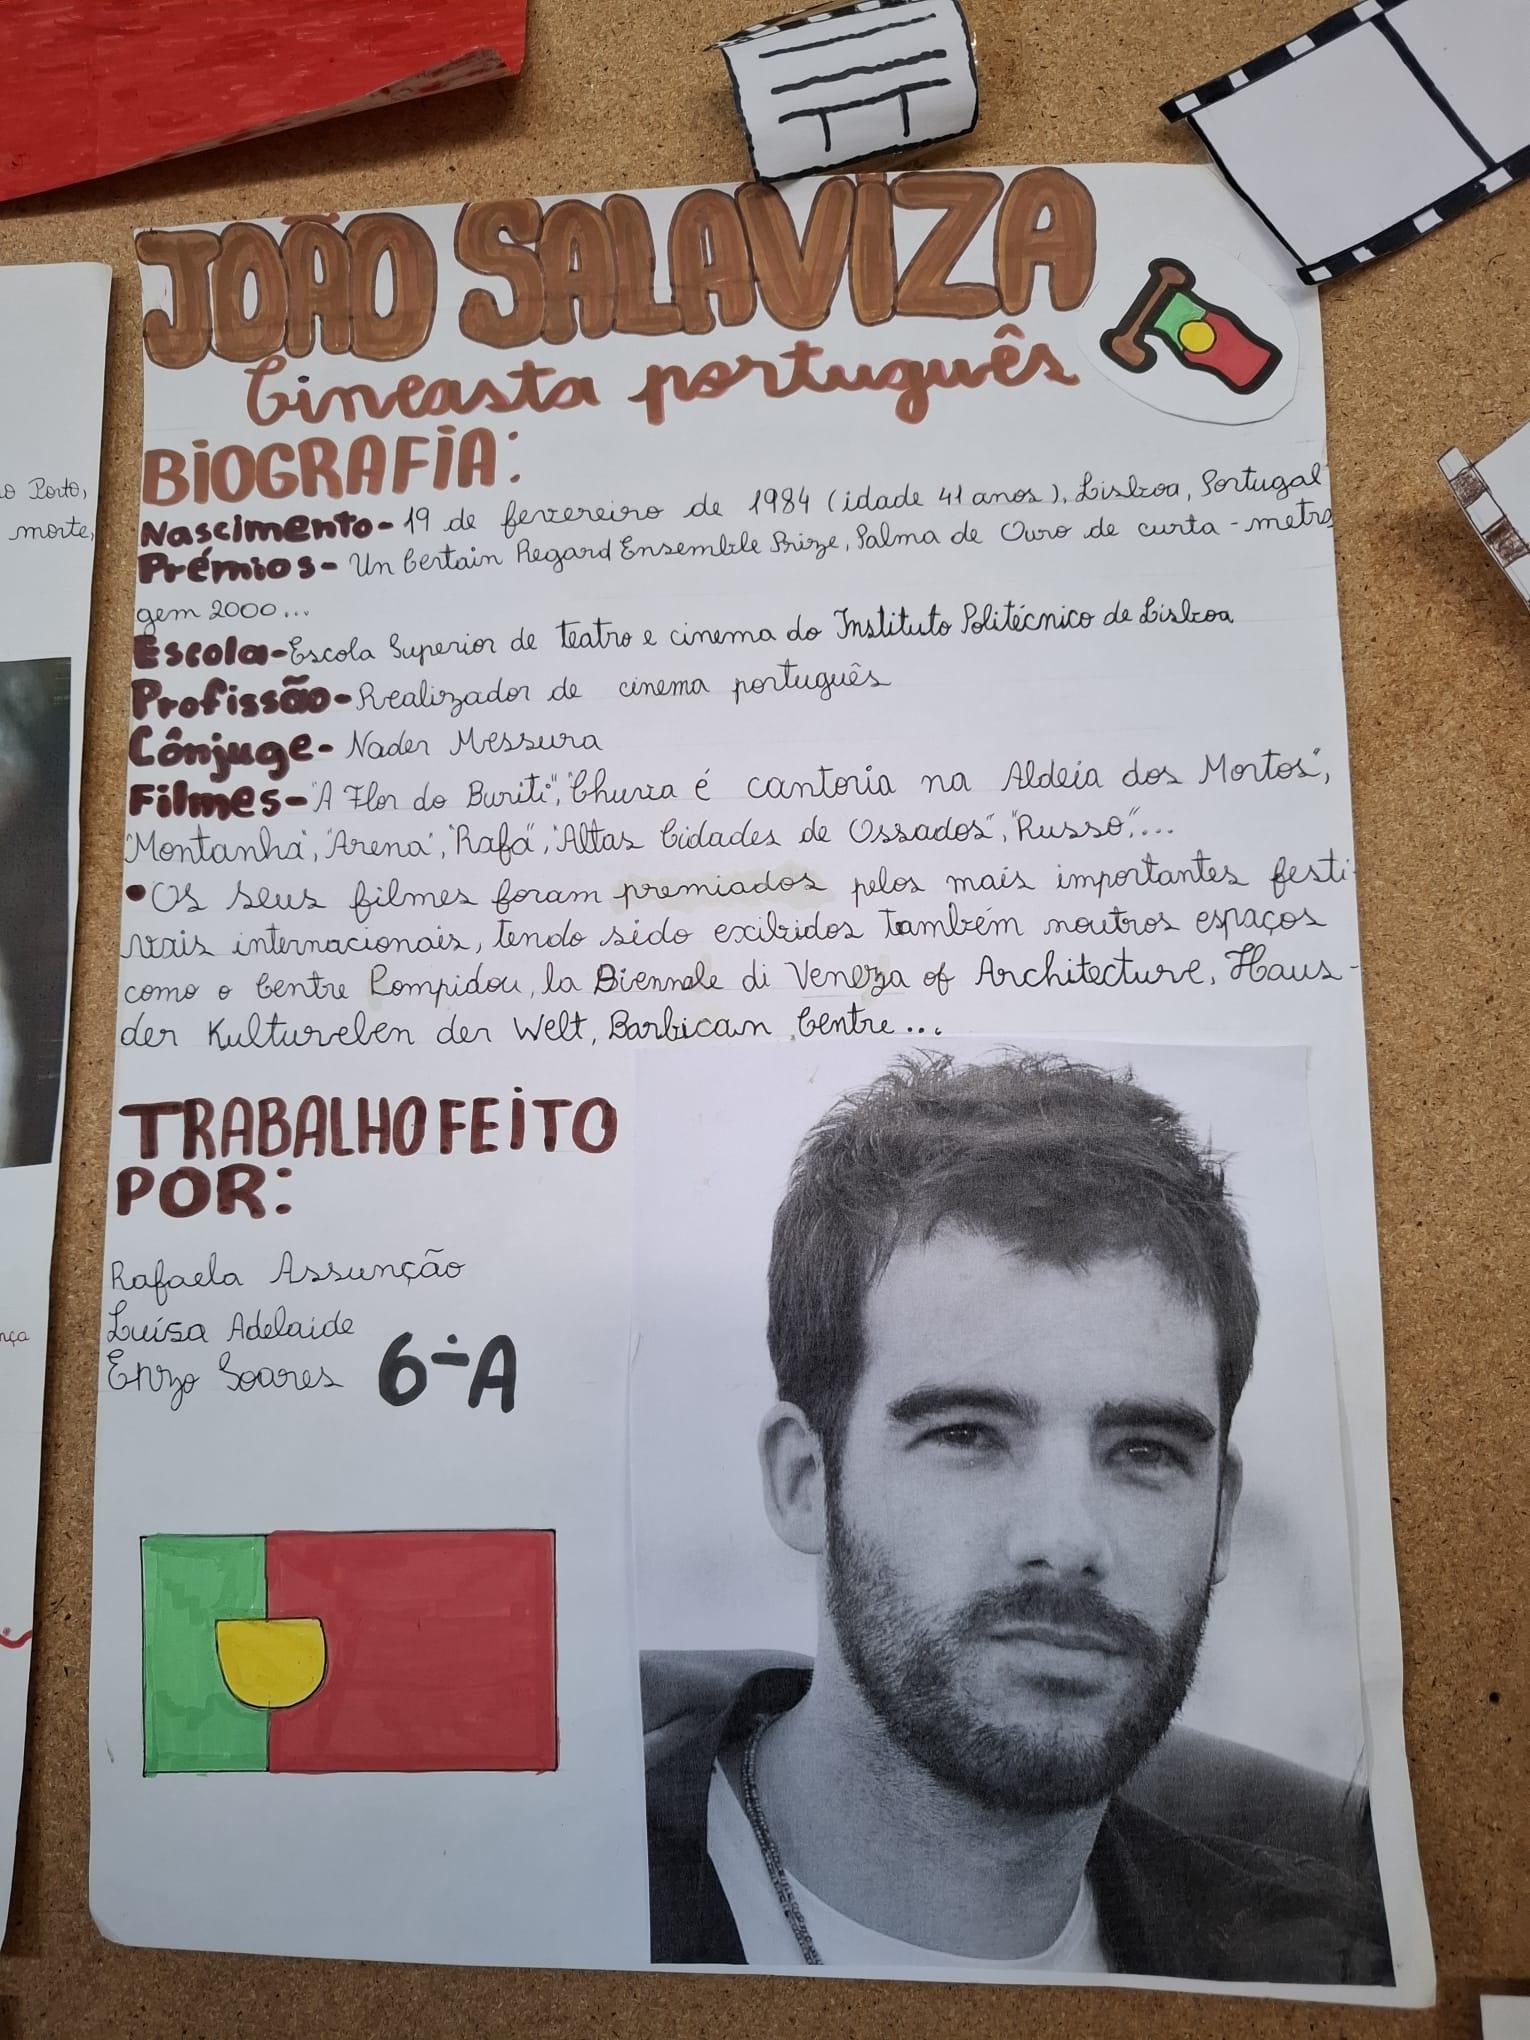 JOÃO SALAVIZA
Cineasta português
BIOGRAFIA:
Nascimento- 19 de fevereiro de 1984 (idade 41 anos), Lisboa, Portugal
Prémios- Un Certain Regard Ensemble Prize, Palma de Ouro de curta-metra
gem 2000...
Escola- Escola Superior de teatro e cinema do Instituto Politécnico de Lisboa
Profissão- Realizador de cinema português
Cônjuge- Nader Messura
Filmes- "A Flor do Buriti", "Chuva é cantoria na Aldeia dos Mortos",
"Montanha", "Arena", "Rafa", "Altas Cidades de Ossados", "Russo",...
•Os seus filmes foram premiados pelos mais importantes festi-
vais internacionais, tendo sido exibidos também noutros espaços
como o Centre Pompidou, la Biennale di Veneza of Architecture, Haus-
der Kultureben der Welt, Barbican Centre...
TRABALHO FEITO
POR:
Rafaela Assunção
Luísa Adelaide
Enzo Soares
6ºA
o Porto,
morte,
nça